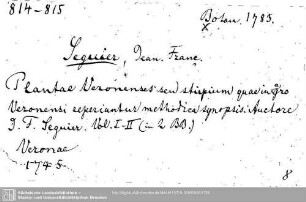 814-815
Botan. 1783.
x
Seguier, Jean. Franc.
Plantae Veronenses seu stirpium quae in agro
Veronensi reperiuntur methodica synopsis. Auctore
J. F. Seguier. Vol. I-II (= 2 BB.)
Veronae
1745
8
Sächsische Landesbibliothek -
Staats- und Universitätsbibliothek Dresden